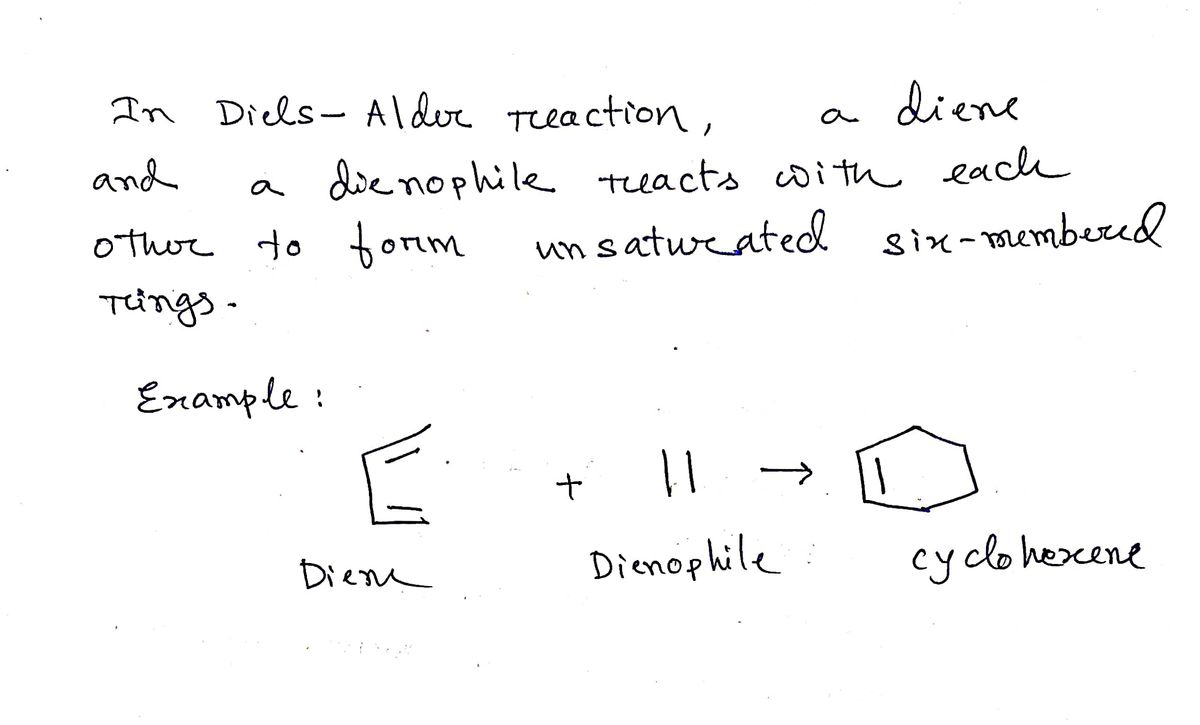 In Diels-Alder reaction, a diene
and a dienophile reacts with each
other to form unsaturated six-membered
rings.
Example:
+ →
Diene Dienophile cyclohexene